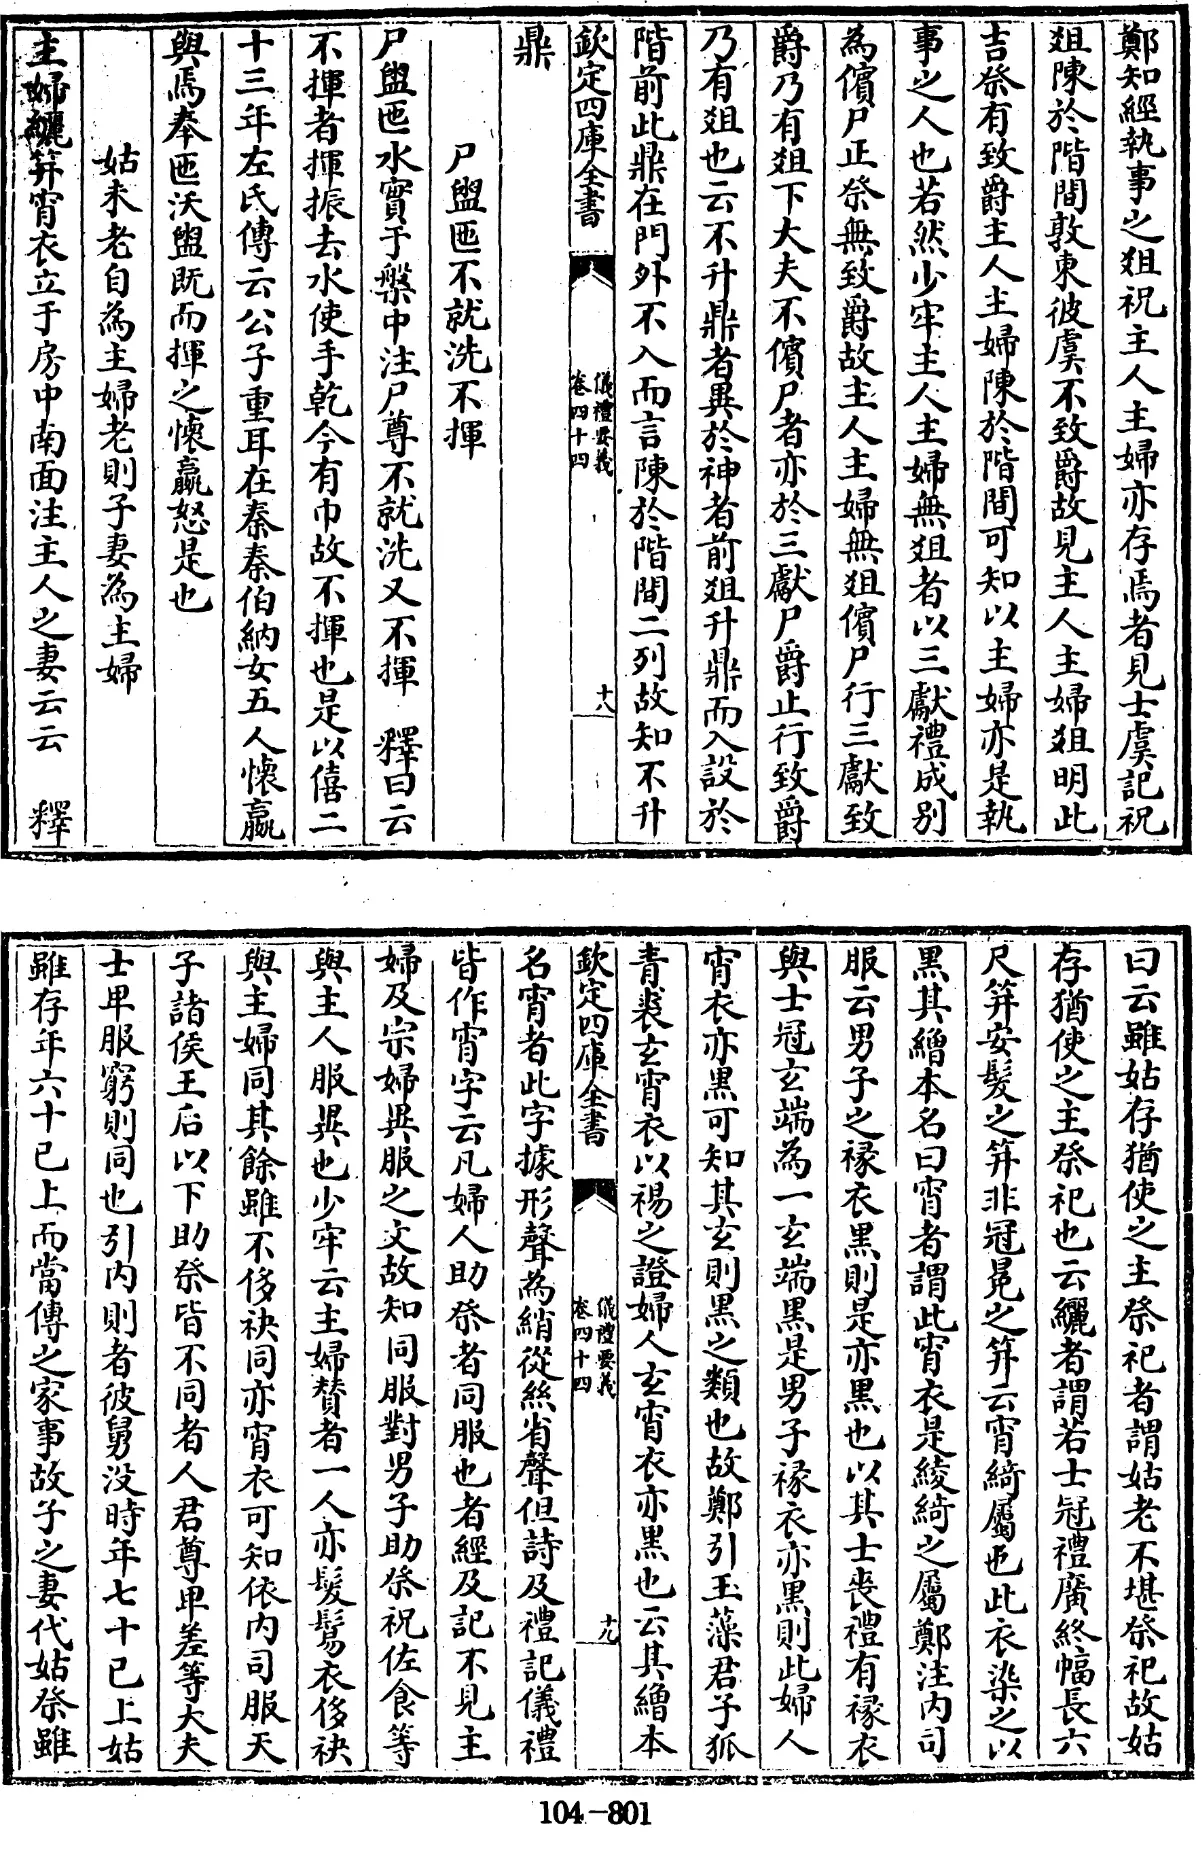 鄭知經執事之俎祝主人主婦亦存焉者見士虞記祝
俎陳於階間敦東彼虞不致爵故見主人主婦俎明此
吉祭有致爵主人主婦陳於階間可知以主婦亦是執
事之人也若然少牢主人主婦無俎者以三獻禮成别
為儐尸正祭無致爵故主人主婦無俎儐尸行三獻致
爵乃有俎下大夫不儐尸者亦於三獻尸爵止行致爵
乃有俎也云不升鼎者異於神者前俎升鼎而入設於
階前此鼎在門外不入而言陳於階間二列故知不升
欽定四庫全書
儀禮要義
卷四十四
十八
鼎
尸盥匜不就洗不揮
尸盥匜水實于槃中注尸尊不就洗又不揮 釋曰云
不揮者揮振去水使手乾今有巾故不揮也是以僖二
十三年左氏傳云公子重耳在秦秦伯納女五人懷嬴
與焉奉匜沃盥既而揮之懷嬴怒是也
姑未老自為主婦老則子妻為主婦
主婦纚笄宵衣立于房中南面注主人之妻云云 釋
曰云雖姑存猶使之主祭祀者謂姑老不堪祭祀故姑
存猶使之主祭祀也云纚者謂若士冠禮廣終幅長六
尺笄安髮之笄非冠冕之笄云宵綺屬也此衣染之以
黑其繒本名曰宵者謂此宵衣是綾綺之屬鄭注内司
服云男子之褖衣黑則是亦黑也以其士喪禮有褖衣
與士冠玄端為一玄端黑是男子褖衣亦黑則此婦人
宵衣亦黑可知其玄則黑之類也故鄭引玉藻君子狐
青裘玄宵衣以裼之證婦人玄宵衣亦黑也云其繒本
欽定四庫全書
儀禮要義
卷四十四
十九
名宵者此字據形聲為綃從絲省聲但詩及禮記儀禮
皆作宵字云凡婦人助祭者同服也者經及記不見主
婦及宗婦異服之文故知同服對男子助祭祝佐食等
與主人服異也少牢云主婦贊者一人亦髲鬄衣侈袂
與主婦同其餘雖不侈袂同亦宵衣可知依内司服天
子諸侯王后以下助祭皆不同者人君尊卑差等大夫
士卑服窮則同也引内則者彼舅没時年七十已上姑
雖存年六十已上而當傳之家事故子之妻代姑祭雖
104-801